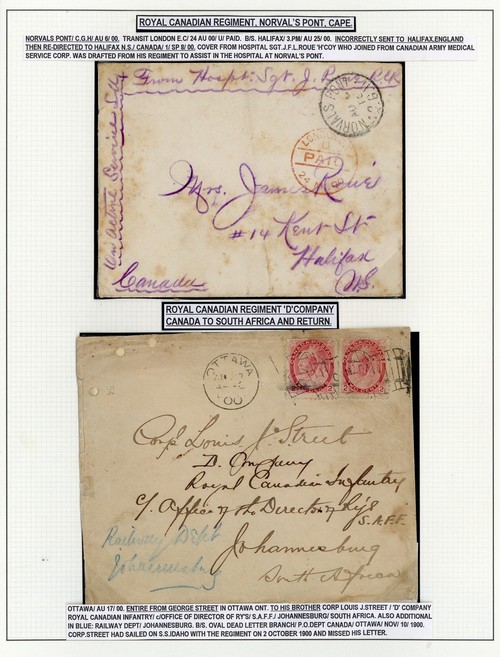 ROYAL CANADIAN REGIMENT, NORVAL'S PONT, CAPE.
NORVALS PONT/ C.G.H/ AU 6/ 00. TRANSIT LONDON E.C/ 24 AU 00/ U/ PAID. B/S. HALIFAX/ 3.PM/ AU 25/ 00. INCORRECTLY SENT TO HALIFAX,ENGLAND
THEN RE-DIRECTED TO HALIFAX N.S./ CANADA/ 1/ SP 8/ 00. COVER FROM HOSPITAL SGT.J.F.L.ROUE 'H'COY WHO JOINED FROM CANADIAN ARMY MEDICAL
SERVICE CORP. WAS DRAFTED FROM HIS REGIMENT TO ASSIST IN THE HOSPITAL AT NORVAL'S PONT.
From Hospt: Sgt. J. Roue R.C.R
On Active Service Only
NORVALS PONT
LONDON
PAID
24 AU 00
Mrs. James Roue
#14 Kent St
Halifax
N.S.
Canada
ROYAL CANADIAN REGIMENT 'D'COMPANY
CANADA TO SOUTH AFRICA AND RETURN.
OTTAWA
00
Corp Louis J. Street
D. Company
Royal Canadian Infantry
c/o Office of the Director of Ry's
S.A.F.F.
Johannesburg
South Africa
Railway Dept
Johannesburg
OTTAWA/ AU 17/ 00. ENTIRE FROM GEORGE STREET IN OTTAWA ONT. TO HIS BROTHER CORP LOUIS J.STREET / 'D' COMPANY
ROYAL CANADIAN INFANTRY/ c/OFFICE OF DIRECTOR OF RY'S/ S.A.F.F./ JOHANNESBURG/ SOUTH AFRICA. ALSO ADDITIONAL
IN BLUE: RAILWAY DEPT/ JOHANNESBURG. B/S. OVAL DEAD LETTER BRANCH/ P.O.DEPT CANADA/ OTTAWA/ NOV/ 10/ 1900.
CORP.STREET HAD SAILED ON S.S.IDAHO WITH THE REGIMENT ON 2 OCTOBER 1900 AND MISSED HIS LETTER.